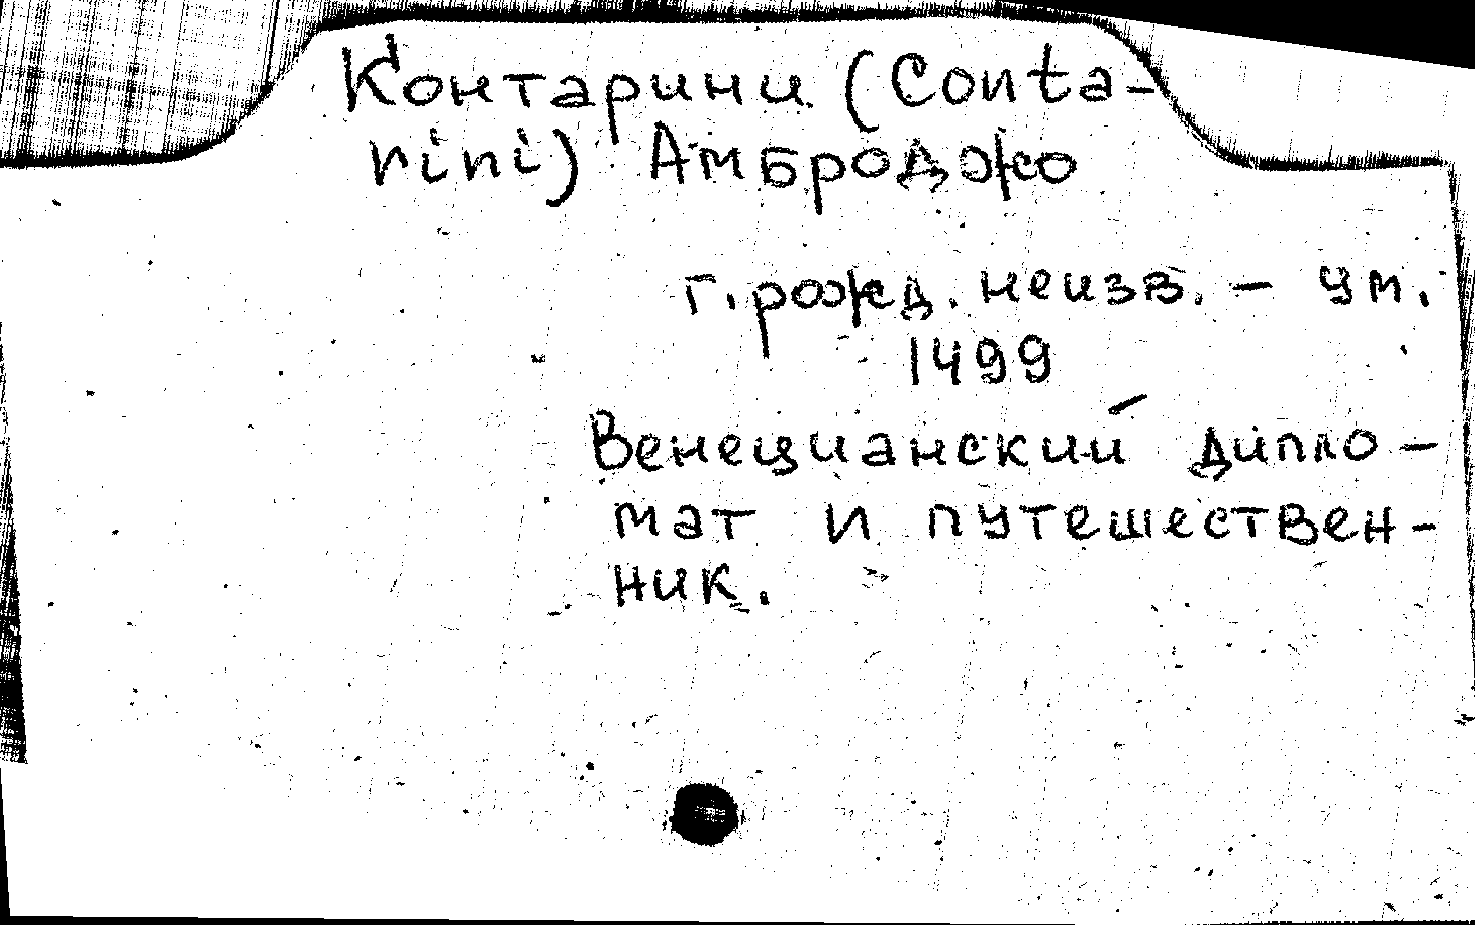 Контарини (Conta-
rini) Амброджо
г. рожд. неизв. - ум.
1499
Венецианский дипло-
мат и путешествен-
ник.